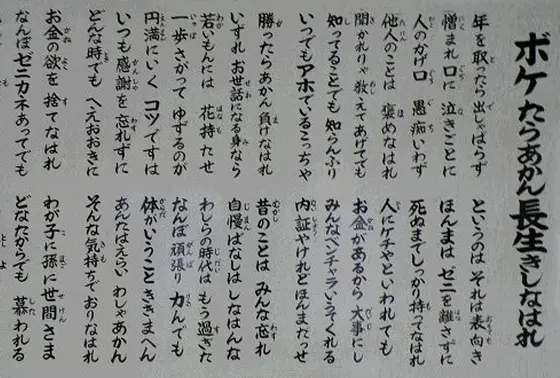 ボケたらあかん長生きしなはれ
年を取ったら出しゃばらず
憎まれ口に 泣きごとに
人のかげ口 愚痴いわず
他人のことは 褒めなはれ
聞かれりゃ教えてあげてでも
知ってることでも 知らんふり
いつでもアホでいるこっちゃ
勝ったらあかん 負けなはれ
いずれお世話になる身なら
若いもんには 花持たせ
一歩さがって ゆずるのが
円満にいく コツですは
いつも感謝を 忘れずに
どんな時でも へえおおきに
お金の欲を 捨てなはれ
なんぼゼニカネあってでも
というのは それは表向き
ほんまは ゼニを離さずに
死ぬまでしっかり持ってなはれ
人にケチやといわれても
お金があるから 大事にし
みんなベンチャラいうてくれる
内証やけれどほんまだっせ
昔のことは みんな忘れ
自慢ばなしは しなはんな
わしらの時代は もう過ぎた
なんぼ頑張り 力んでも
体がいうこと ききまへん
あんたはえらい わしゃあかん
そんな気持ちで おりなはれ
わが子に孫に 世間さま
どなたからでも 慕われる